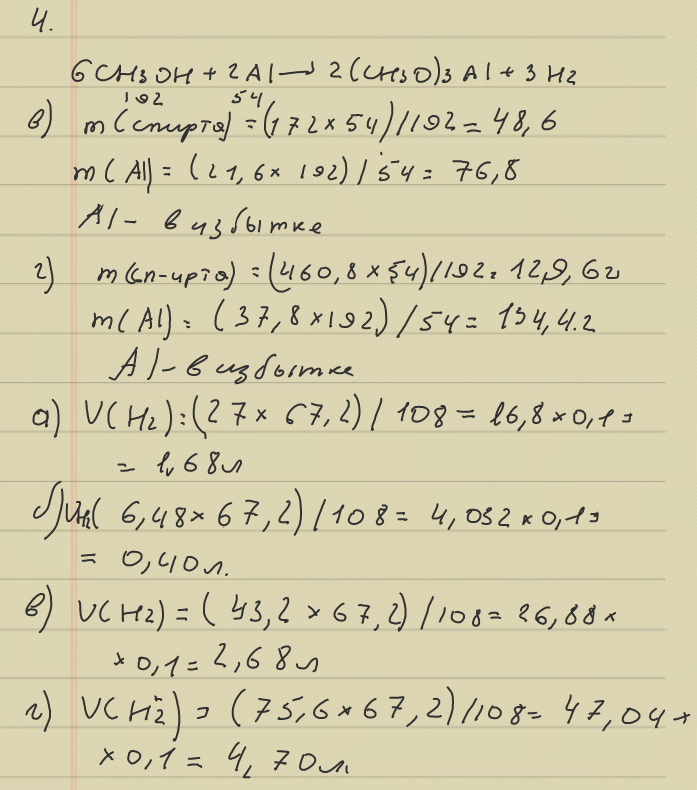 4.
6CH3OH + 2Al → 2(CH3O)3Al + 3H2
192 54
в) m(спирта) = (172 × 54)/192 = 48,6
m(Al) = (21,6 × 192)/54 = 76,8
Al - в избытке
г) m(сп-ирта) = (460,8 × 54)/192 = 129,6г
m(Al) = (37,8 × 192)/54 = 134,4г
Al - в избытке
а) V(H2) = (27 × 67,2)/108 = 16,8 × 0,1 =
= 1,68л
б) VH2( 6,48 × 67,2)/108 = 4,032 × 0,1 =
= 0,40л.
в) V(H2) = (43,2 × 67,2)/108 = 26,88 ×
× 0,1 = 2,68л
г) V(H2) = (75,6 × 67,2)/108 = 47,04 ×
× 0,1 = 4,70л.